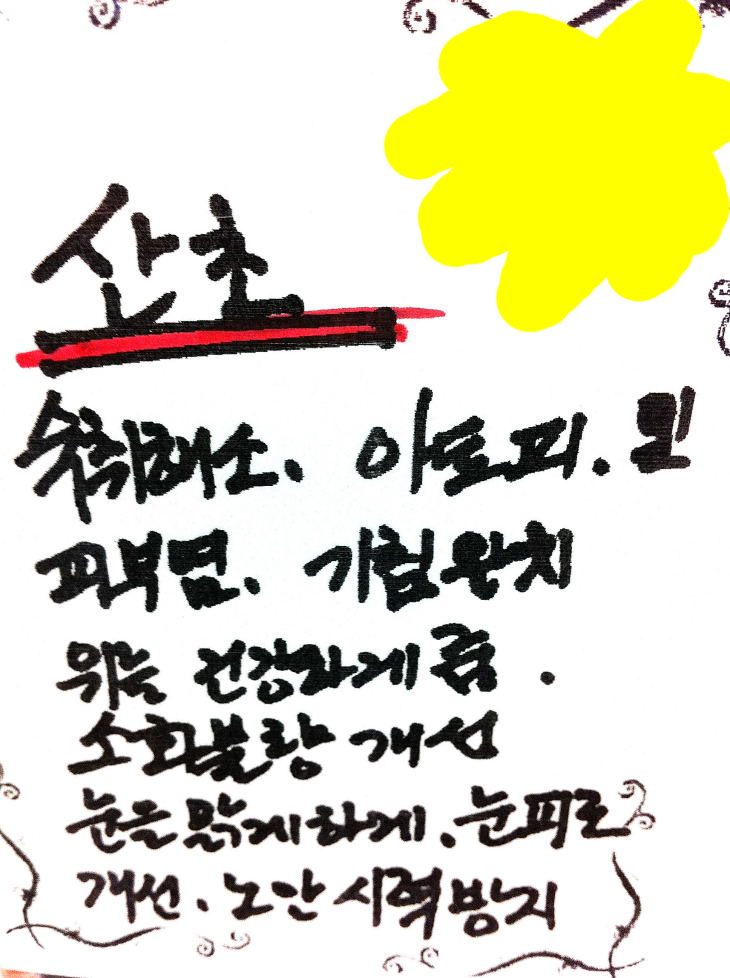 산초
숙취해소. 아토피. 및
피부염. 기침완치
위를 건강하게 줌.
소화불량 개선
눈을 맑게 하게. 눈피로
개선. 노안 시력방지